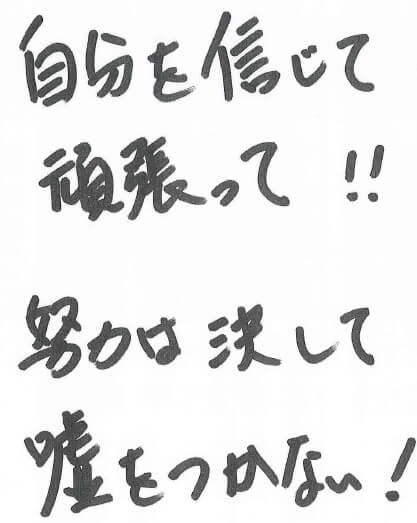 自分を信じて
頑張って!!
努力は決して
嘘をつかない!